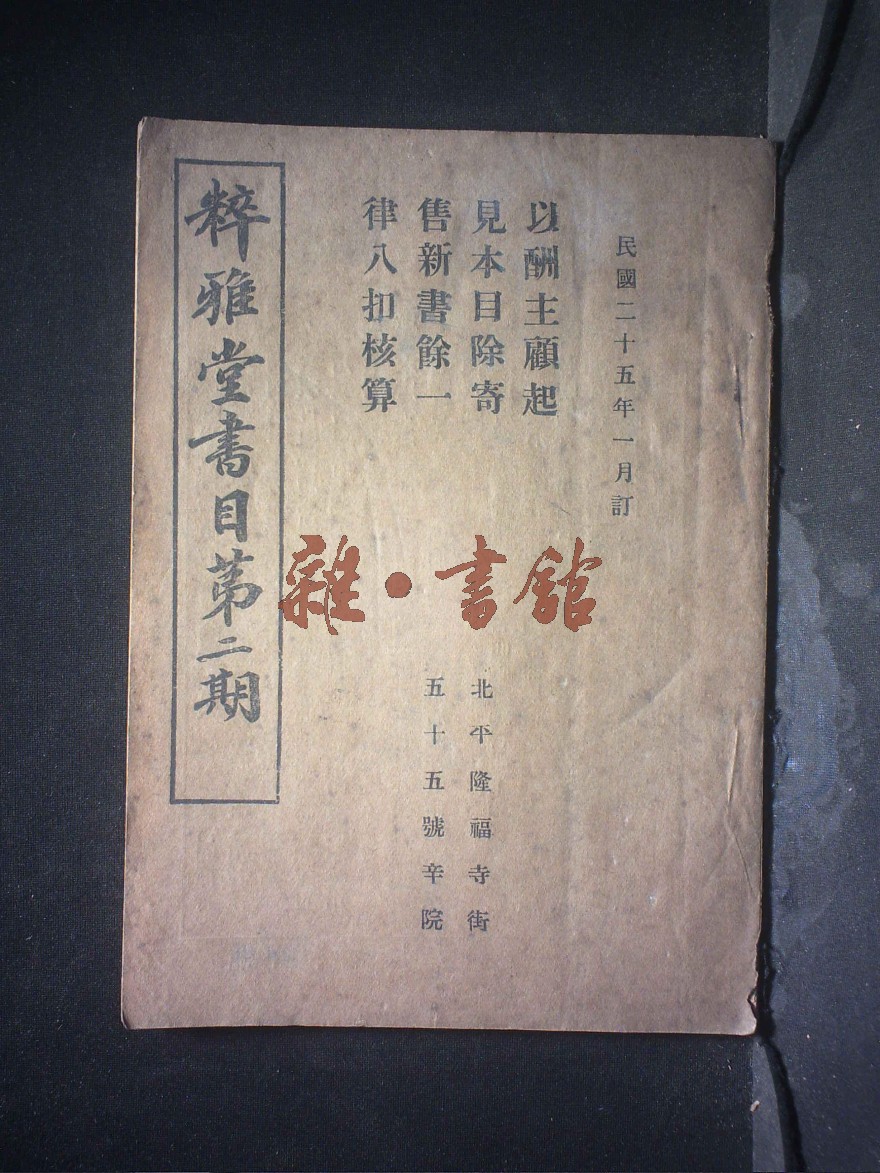 民國二十五年一月訂
以酬主顧起
見本目除寄
售新書餘一
律八扣核算
北平隆福寺街
五十五號辛院
粹雅堂書目第二期
雜·書館